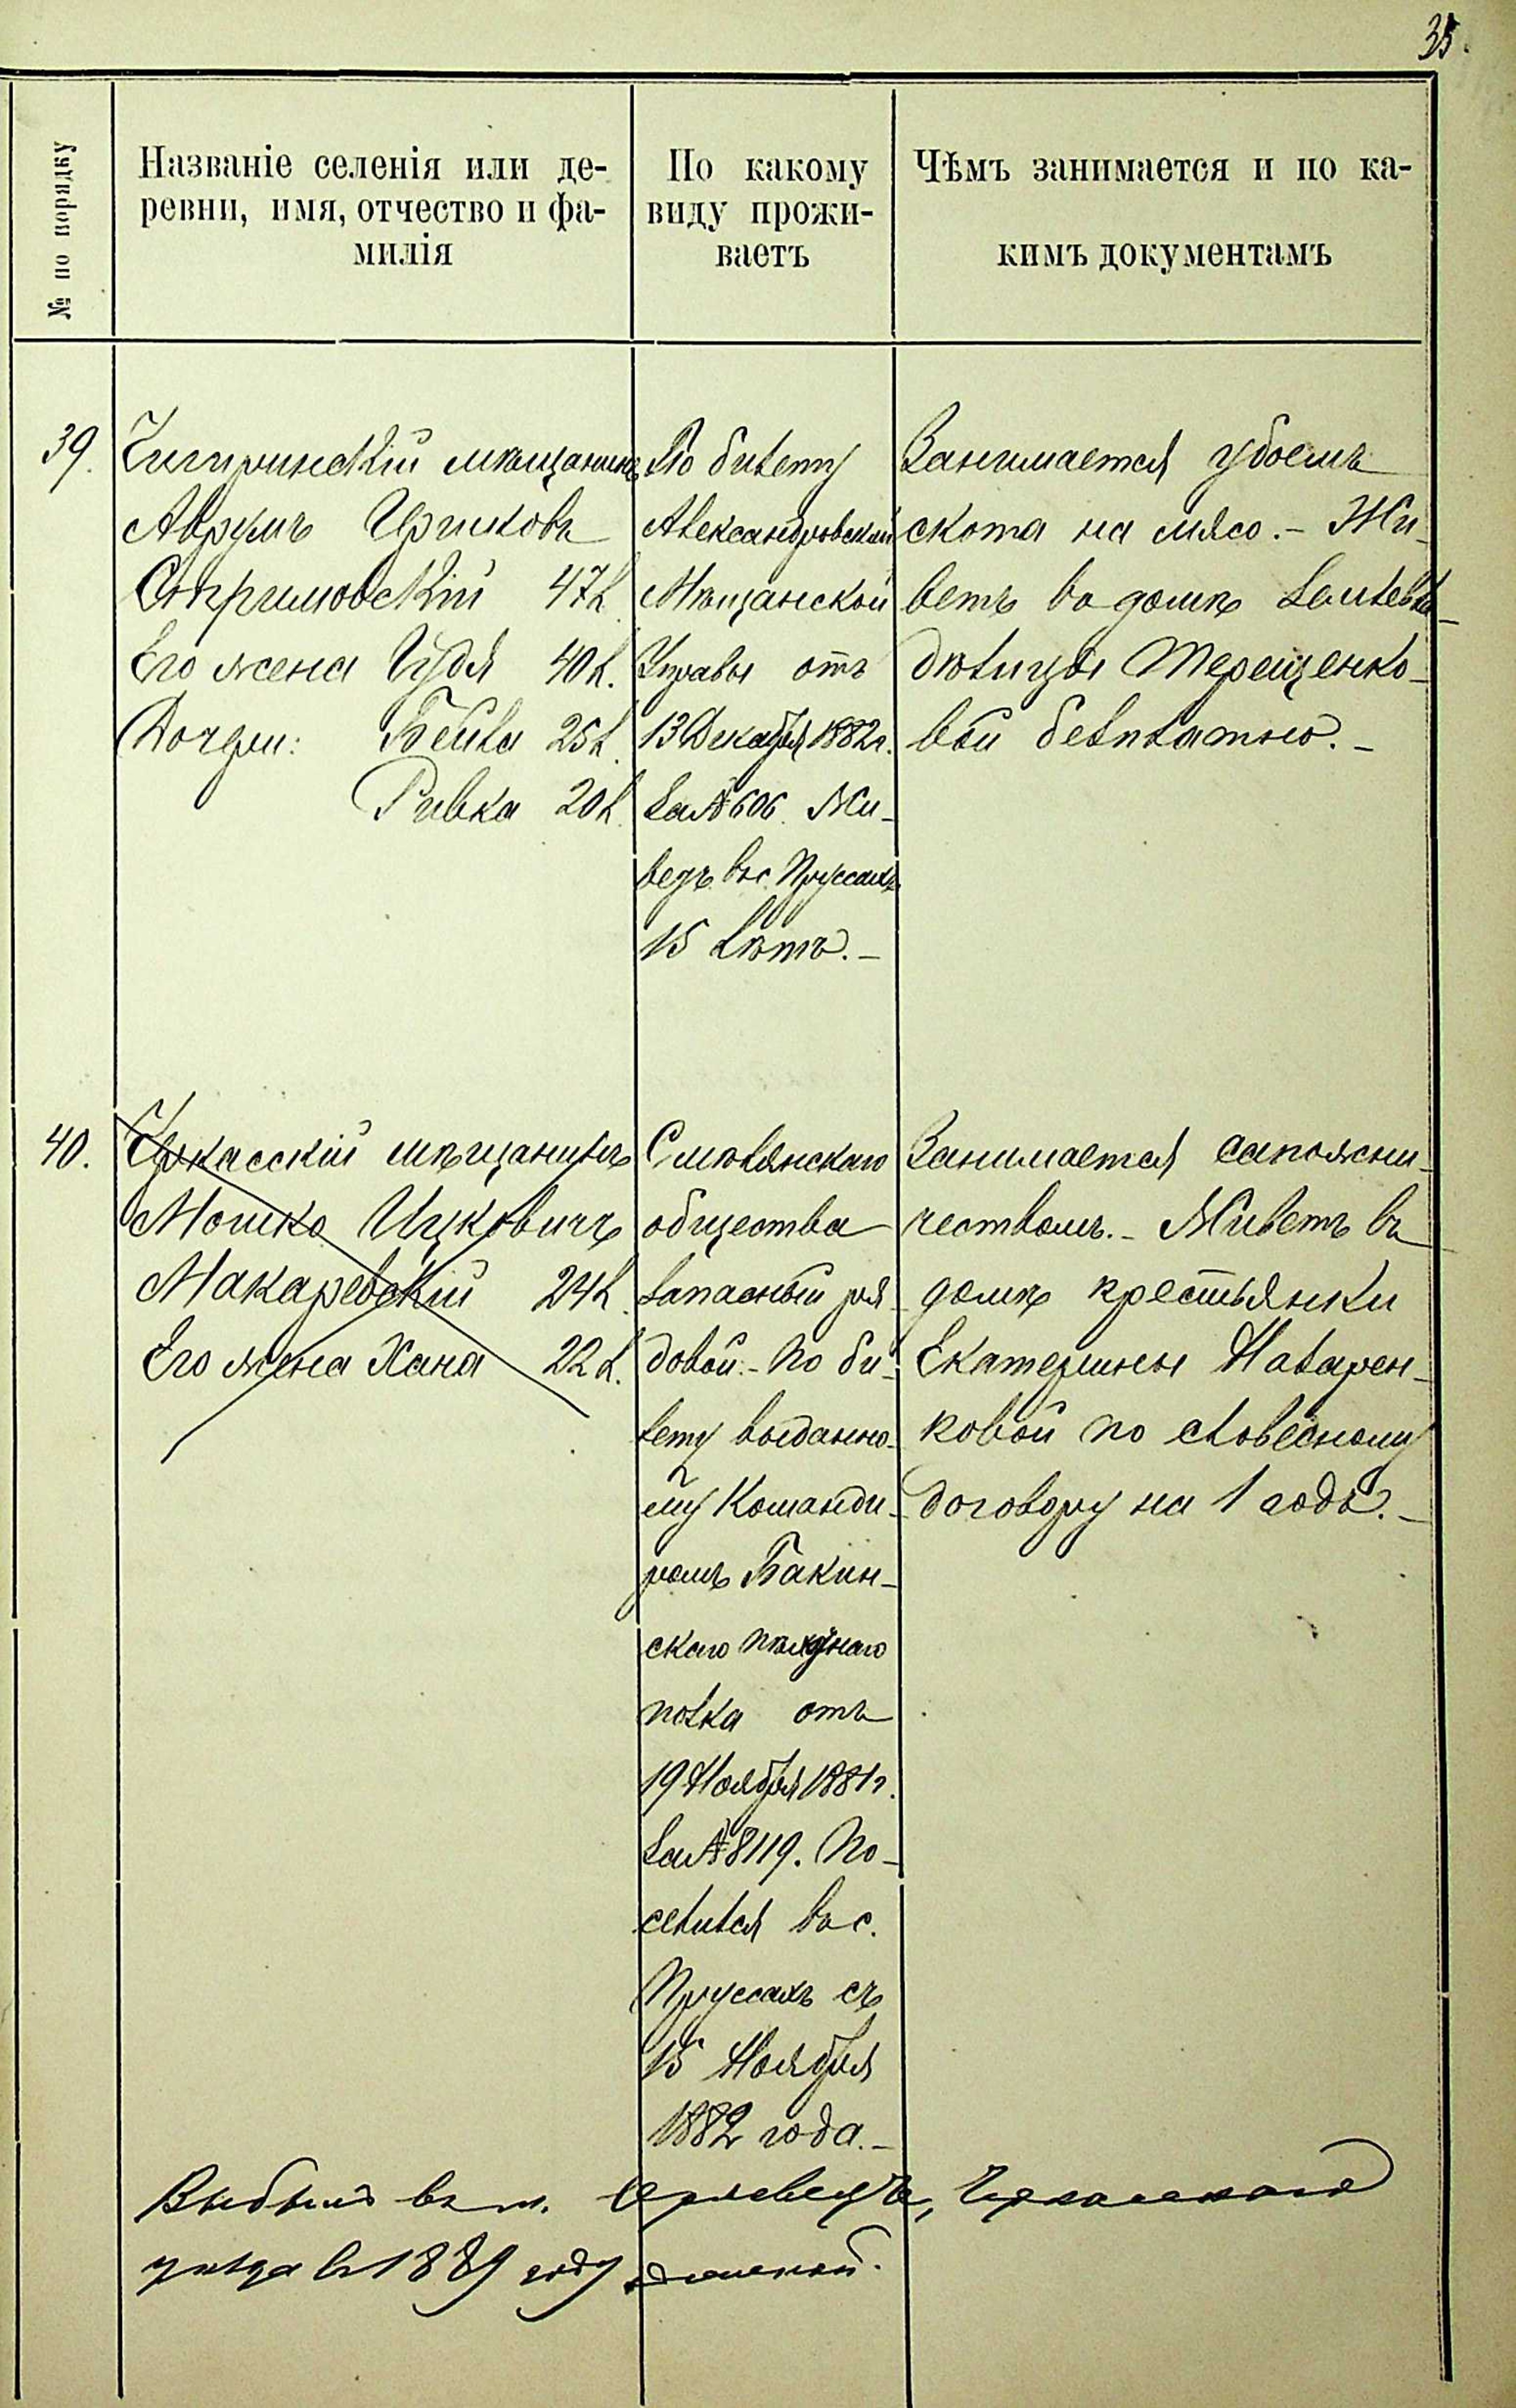 35.
№ по порядку
Названіе селенія или де-
ревни, имя, отчество и фа-
милія
По какому
виду прожи-
ваетъ
Чѣмъ занимается и по ка-
кимъ документамъ
39.
Чигиринскій мѣщанинъ
Аврумъ Иршковъ
47 л.
Его жена Иудя 40 л.
Дочери: Бейла 25 л.
Ривка 20 л.
По билету
Александровской
Мѣщанской
Управы отъ
13 Декабря 1882 г.
за № 606. Жи-
ветъ въ с. Пруссахъ
15 лѣтъ. –
Занимается убоемъ
скота на мясо. – Жи-
ветъ въ домѣ землевла-
дѣлицы Терещенко-
вой безплатно. –
40.
Черкасскій мѣщанинъ
Мошко Ицковичъ
Макаревскій 24 л.
Его жена Хана 22 л.
Смѣлянскаго
общества
запасный ря-
довой. – По би-
лету выданно-
му Команди-
ромъ Бакин-
скаго пѣхотнаго
полка отъ
19 Ноября 1881 г.
за № 8119. По-
селился въ с.
Пруссахъ съ
15 Ноября
1882 года. –
Занимается сапожни-
чествомъ. – Живетъ въ
домѣ крестьянки
Екатерины Назарен-
ковой по словесному
договору на 1 годъ. –
Выбылъ въ м. Черкасскаго
уѣзда въ 1889 году